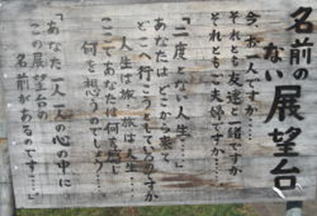 名前の
ない展望台
今、お一人ですか……
それとも友達と一緒ですか
それともご夫婦ですか……
「二度とない人生……」
あなたはどこから来て
どこへ行こうとしているのですか
人生は旅・旅は人生……
ここであなたは何を感じ
何を想うのでしょう……
「あなた一人一人の心の中に
この展望台の
名前があるのです……」